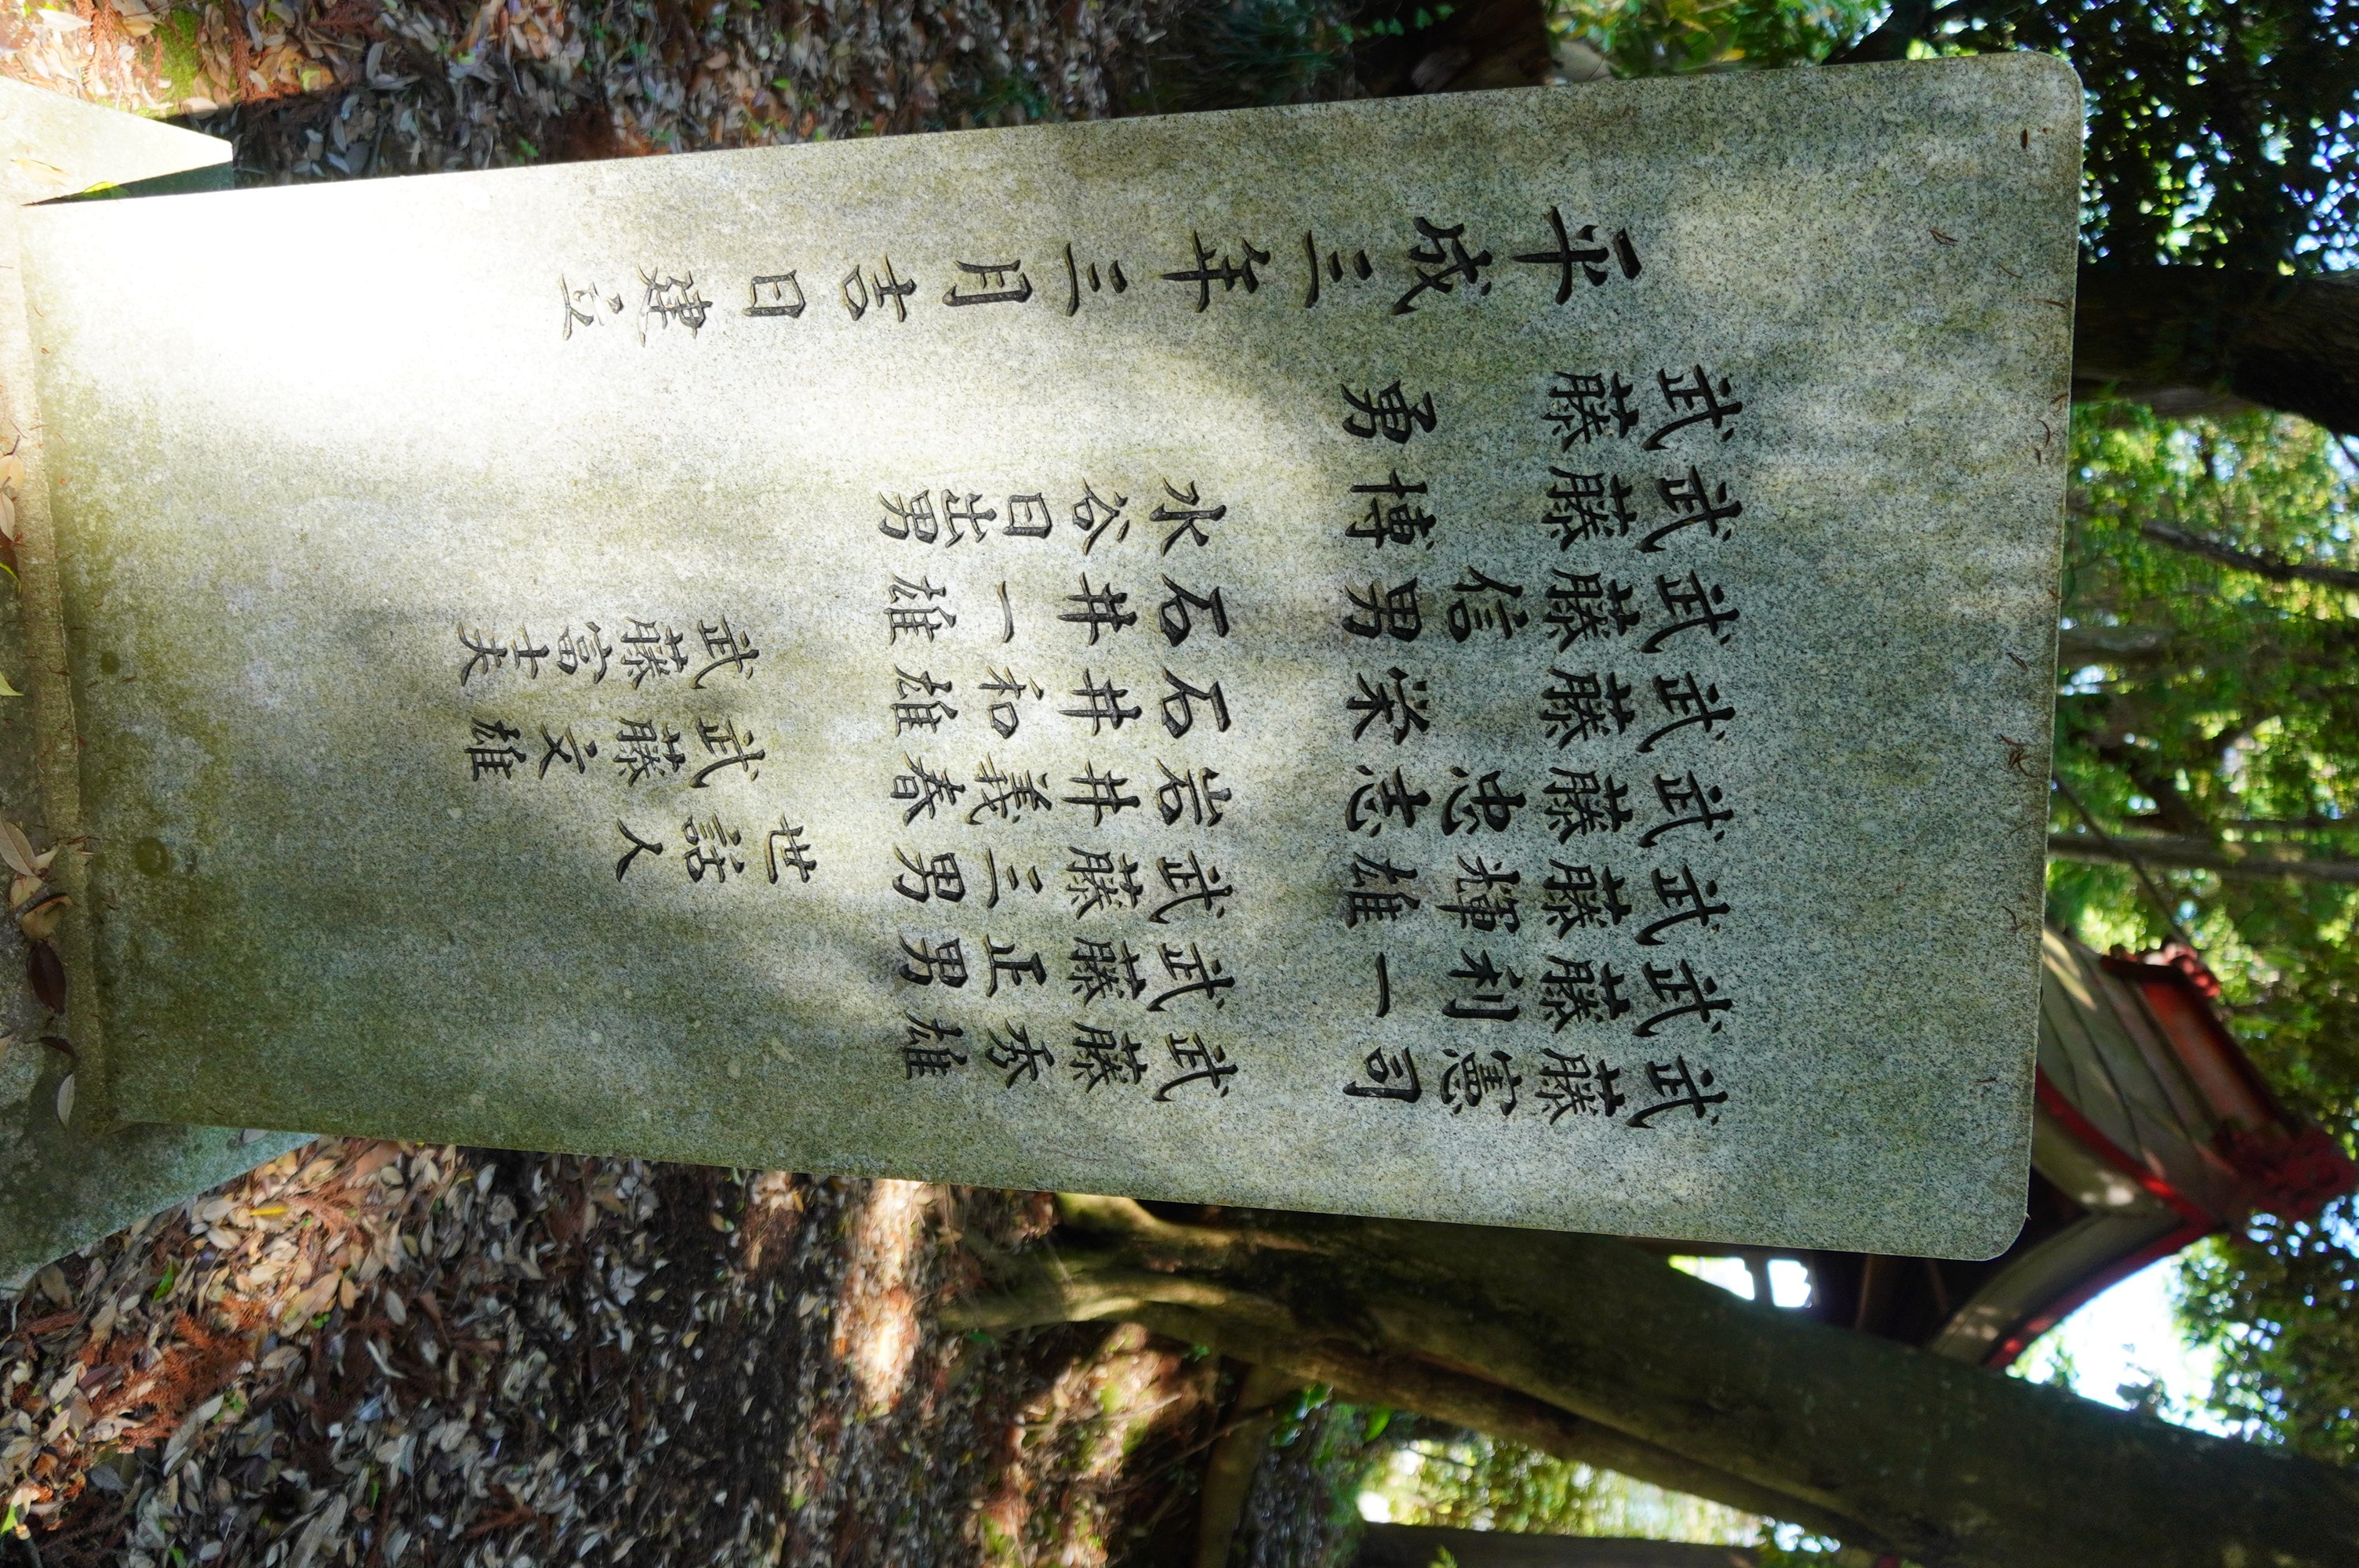 武藤憲司
武藤利一
武藤輝雄
武藤忠志
武藤栄
武藤信男
武藤博
武藤勇
武藤秀雄
武藤正男
武藤三男
岩井義春
石井和雄
石井一雄
水谷日出男
世話人
武藤文雄
武藤富士夫
平成三年三月吉日建立